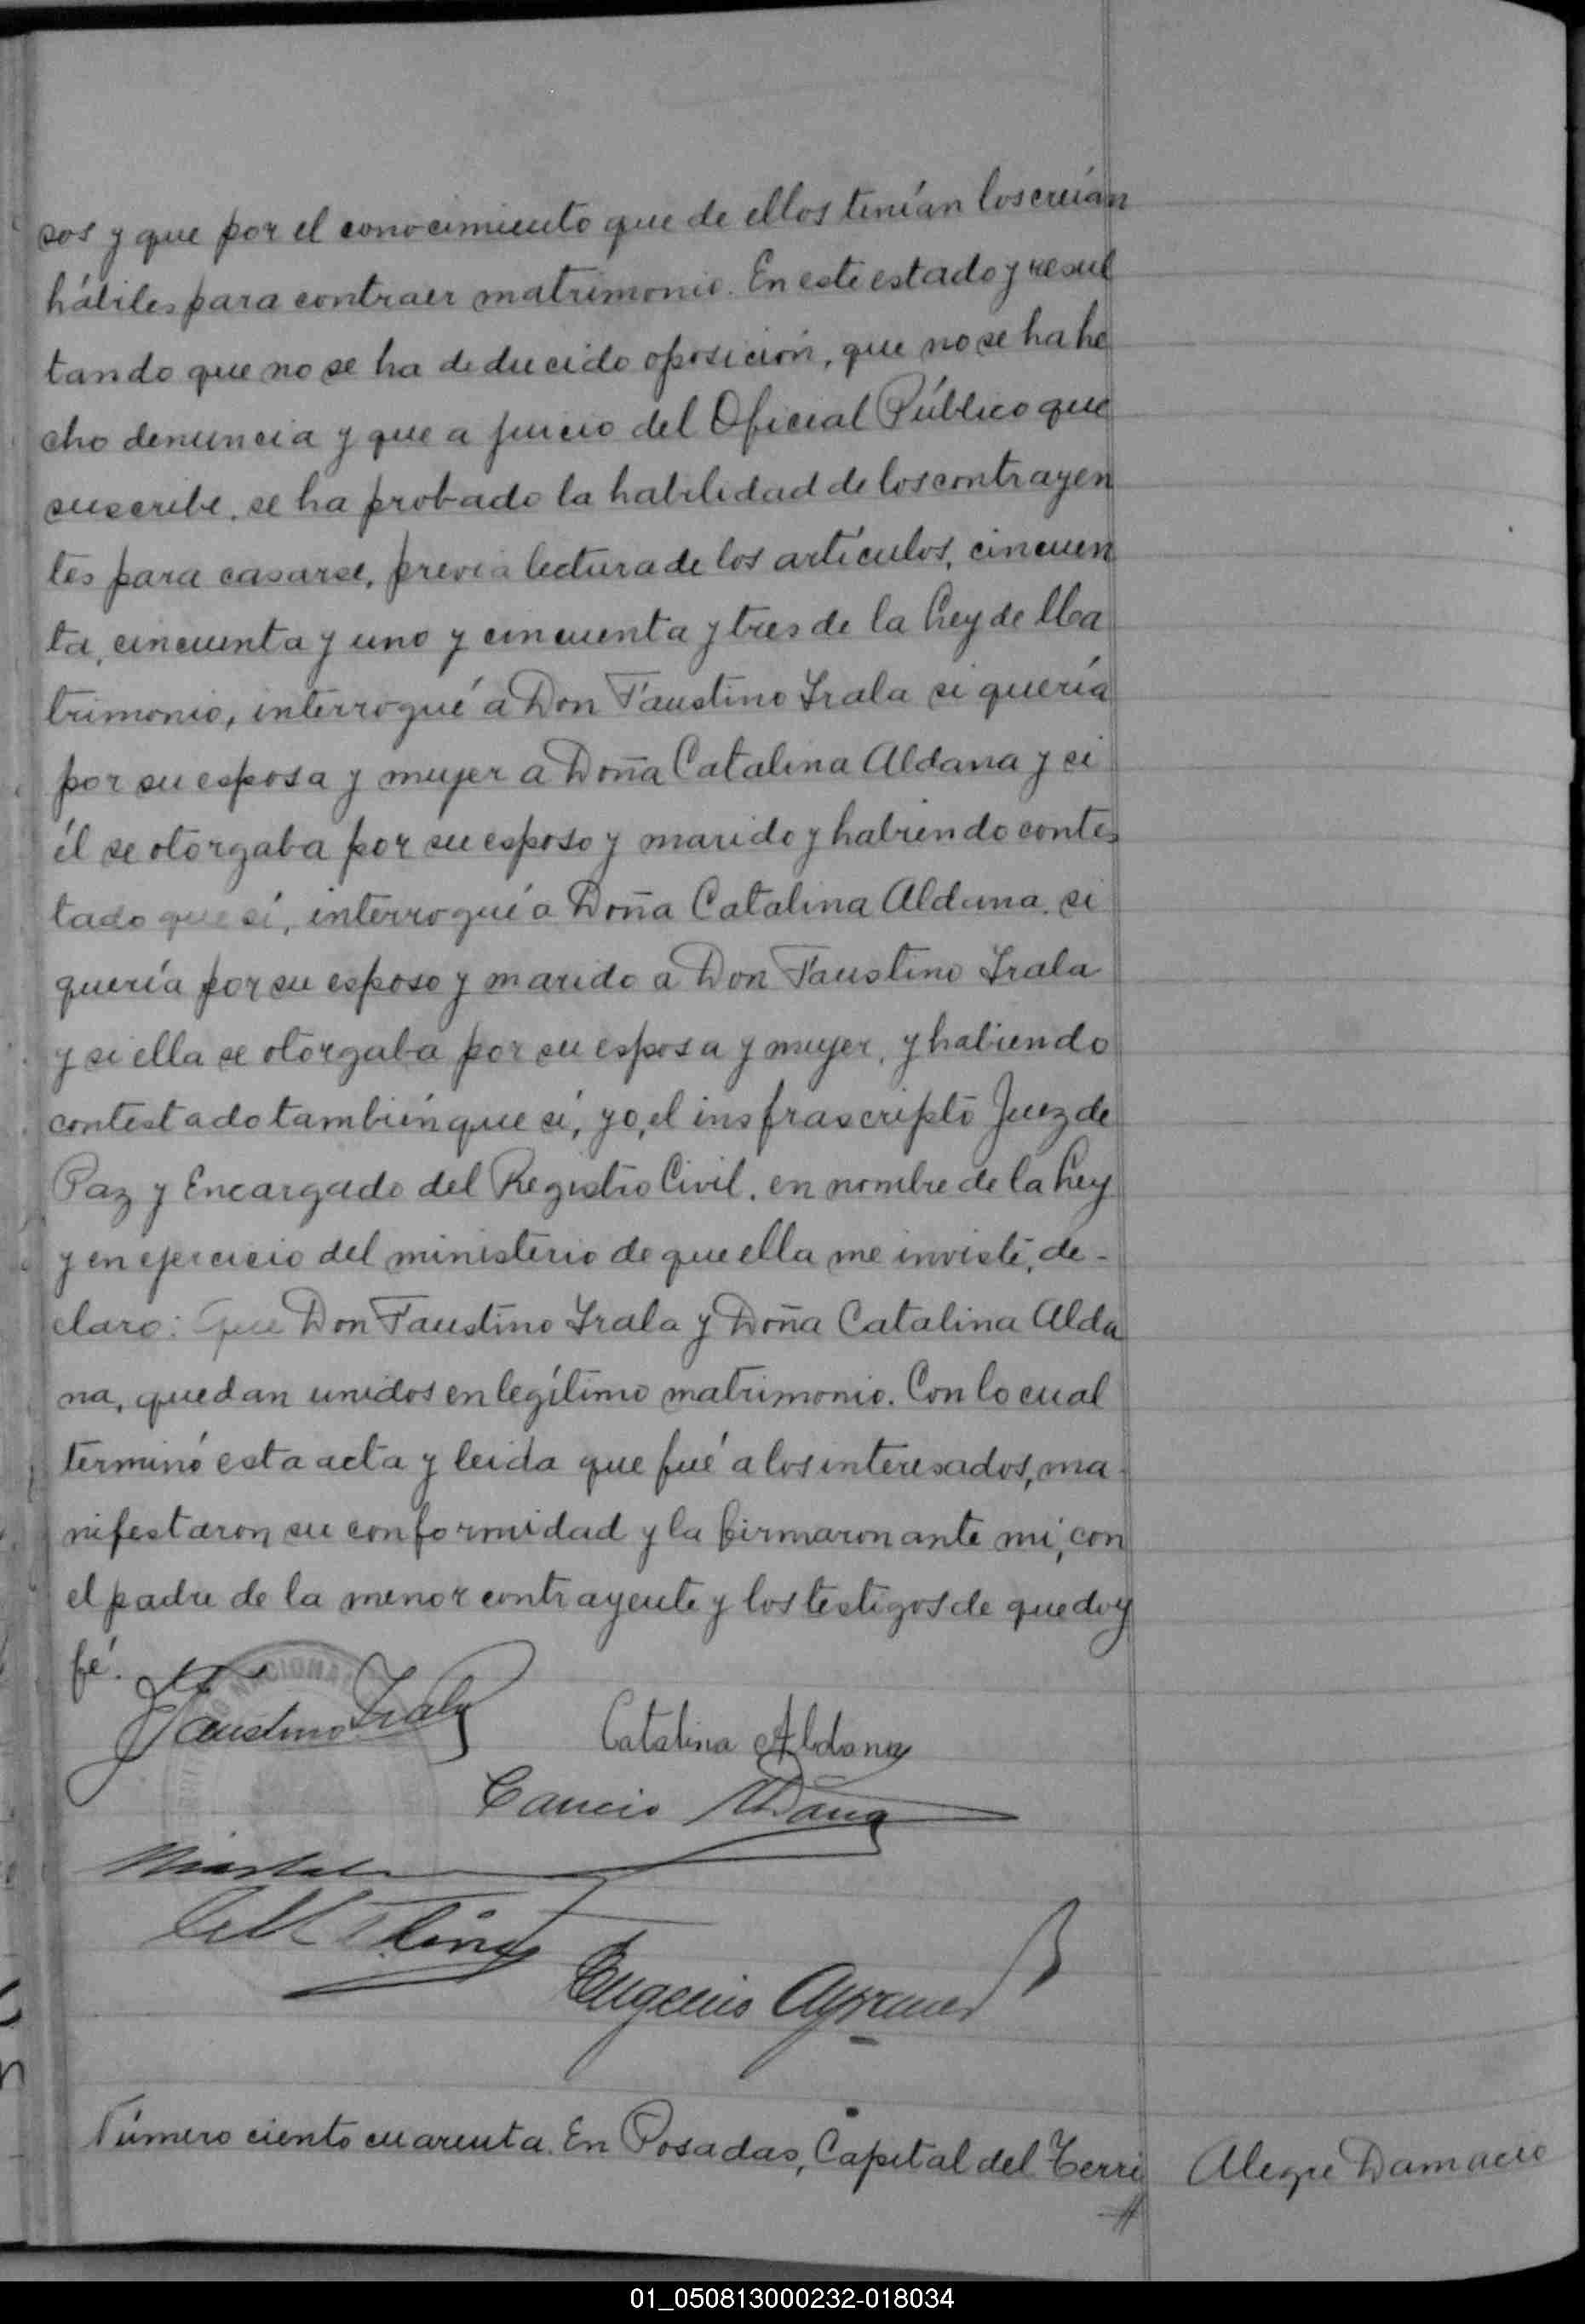 sos y que por el conocimiento que de ellos tenían los creían
hábiles para contraer matrimonio. En este estado y resul
tando que no se ha deducido oposición, que no se ha he
cho denuncia y que a juicio del Oficial Público que
suscribe, se ha probado la habilidad de los contrayen
tes para casarse, previa lectura de los artículos, cincuen
ta, cincuenta y uno y cincuenta y tres de la Ley de Ma
trimonio, interrogué a Don Faustino Irala si quería
por su esposa y mujer a Doña Catalina Aldana y si
él se otorgaba por su esposo y marido y habiendo contes
tado que sí, interrogué a Doña Catalina Aldana, si
quería por su esposo y marido a Don Faustino Irala
y si ella se otorgaba por su esposa y mujer, y habiendo
contestado también que sí, yo, el insfrascripto Juez de
Paz y Encargado del Registro Civil, en nombre de la Ley
y en ejercicio del ministerio de que ella me inviste, de-
claro: Que Don Faustino Irala y Doña Catalina Alda
na, quedan unidos en legítimo matrimonio. Con lo cual
terminó esta acta y leida que fué a los interesados, ma-
nifestaron su conformidad y la firmaron ante mi, con
el padre de la menor contrayente y los testigos de que doy
fé.
Faustino Irala
Catalina Aldana
Cancio Aldana
Eugenio
Número ciento cuarenta. En Posadas, Capital del Terri
Alegre Damacio
01_050813000232-018034